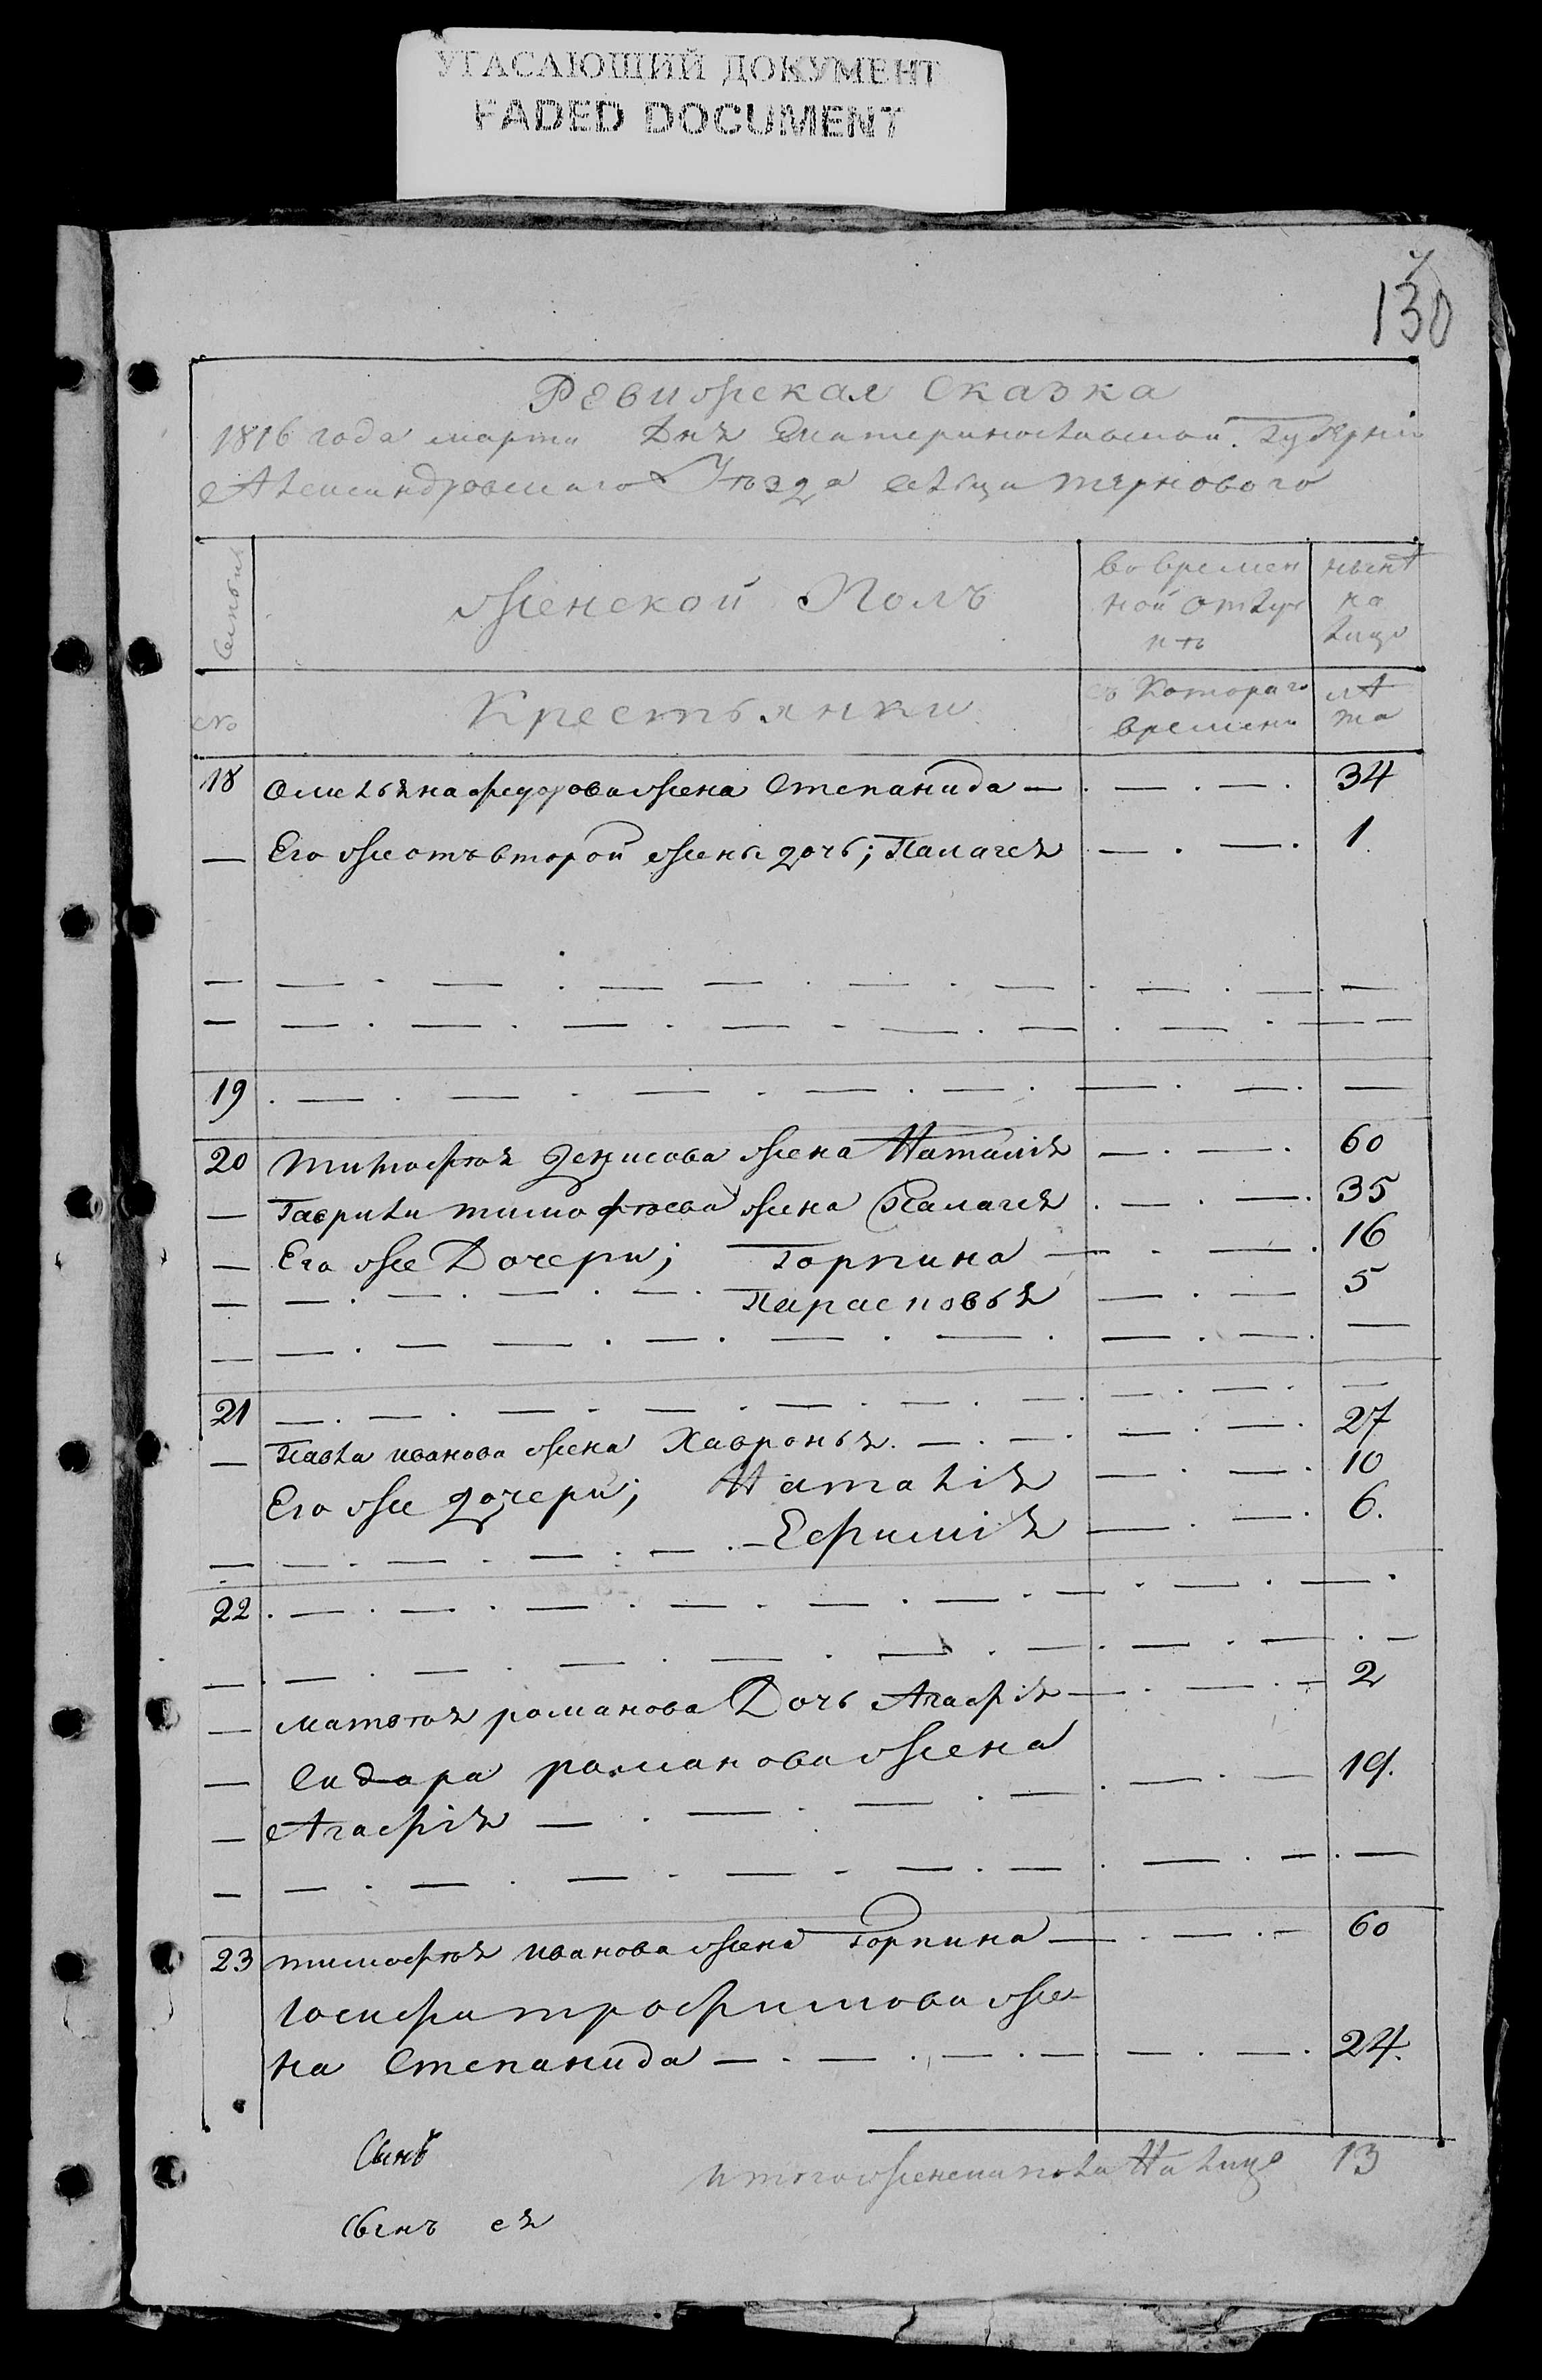 УГАСАЮЩИЙ ДОКУМЕНТ
FADED DOCUMENT
130
Ревижская Сказка
1816 года марта Дня Екатеринославской Губернии
Александровского Уѣзда сельца тернового
Семьи
Женской Полъ
во времен
ной отлуч
кѣ
нынѣ
на
лицо
№
Крестьянки
съ Котораго
времени
лѣ
та
18 Омельяна федорова жена Степанида — 34
— Его же отъ второй жены дочь; Палагея 1
19
20 тимофѣя Денисова жена Наталія 60
— Гаврилы тимофѣева жена Палагея 35
— Его же Дочери; Горпина 16
— Парасковья 5
21
— Павла иванова жена Хавронья 27
Его же дочери; Наталія 10
— Ефимія 6.
22
— матвѣя романова Дочь Агафія 2
— Сидора романова жена 19.
— Агафія
23 тимофѣя иванова жена Горпина 60
Іосифа трофимова же
на Степанида 24.
Сынъ
итого женска пола На лицо 13
сынъ ея